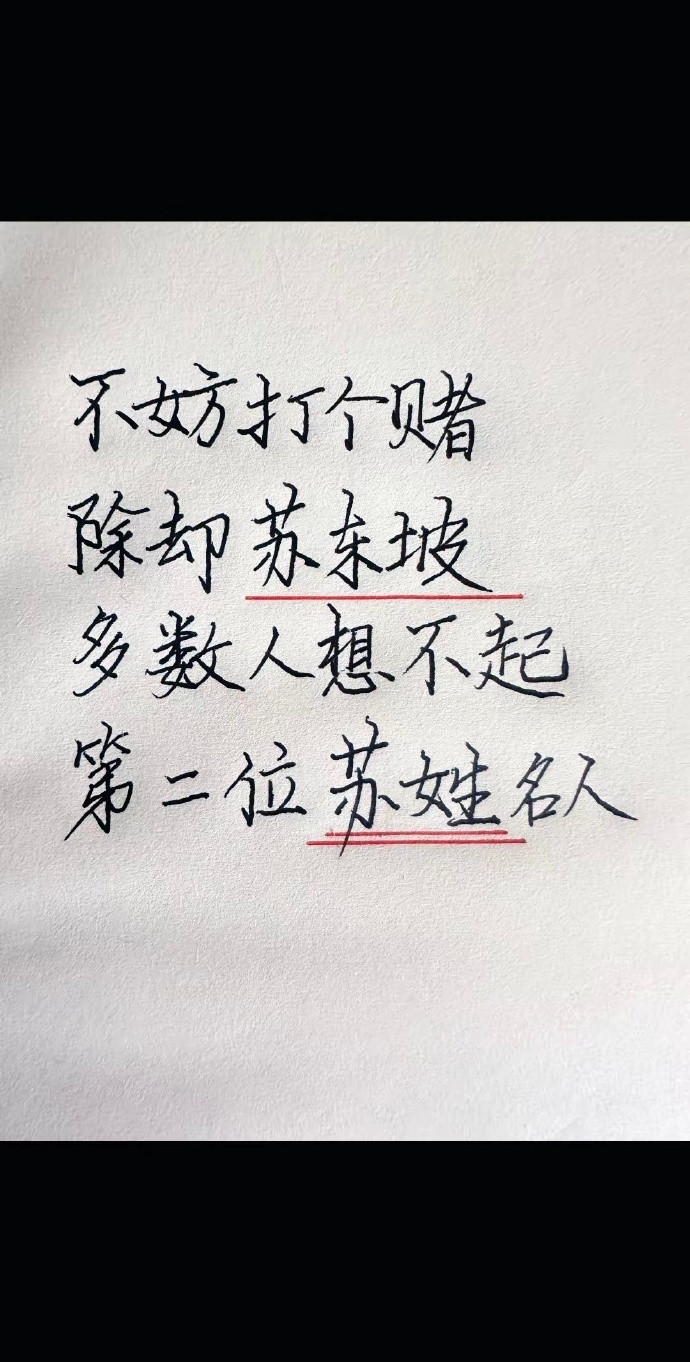 不妨打个赌
除却苏东坡
多数人想不起
第二位苏姓名人